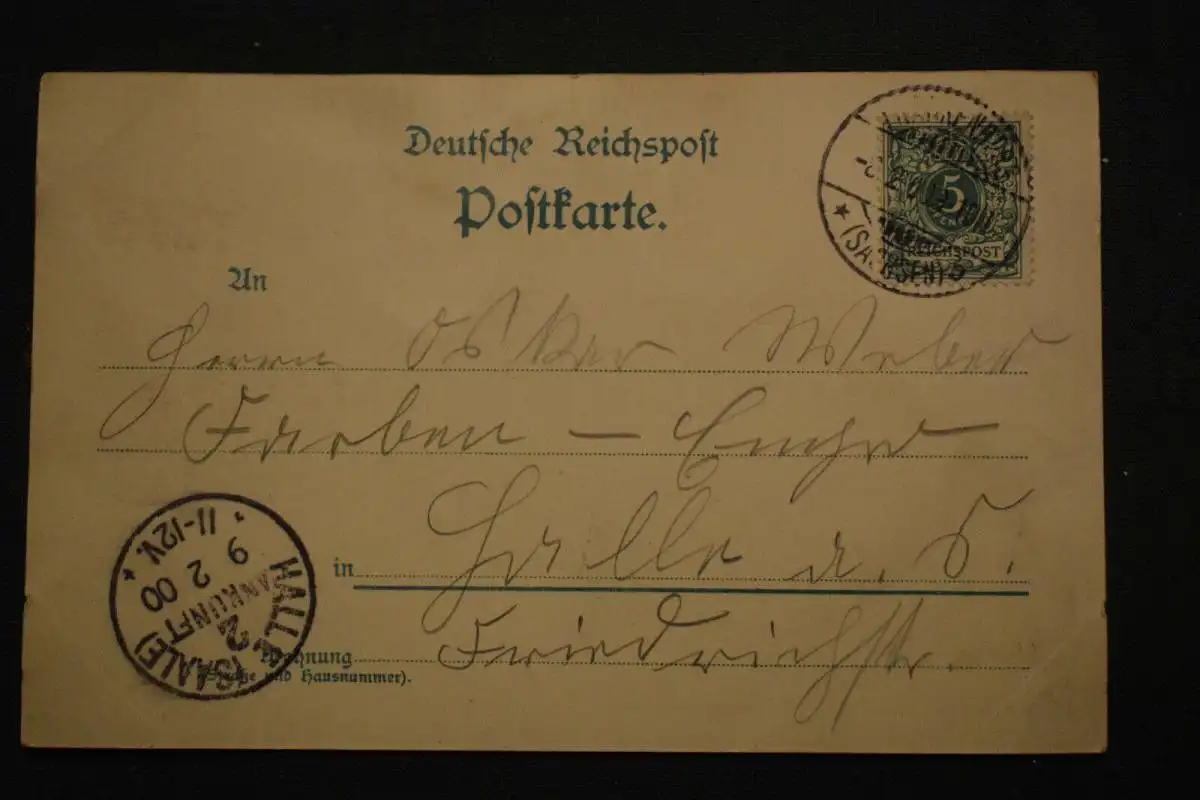 Deutsche Reichspost
Postkarte.
5
REICHSPOST
(SACHSEN)
An
Herrn Oskar Weber
Farben –
in Halle a. S.
Friedrichstr.
Wohnung
(Straße und Hausnummer).
HALLE (SAALE)
2
ANKUNFT
9 2 00
11-12V.